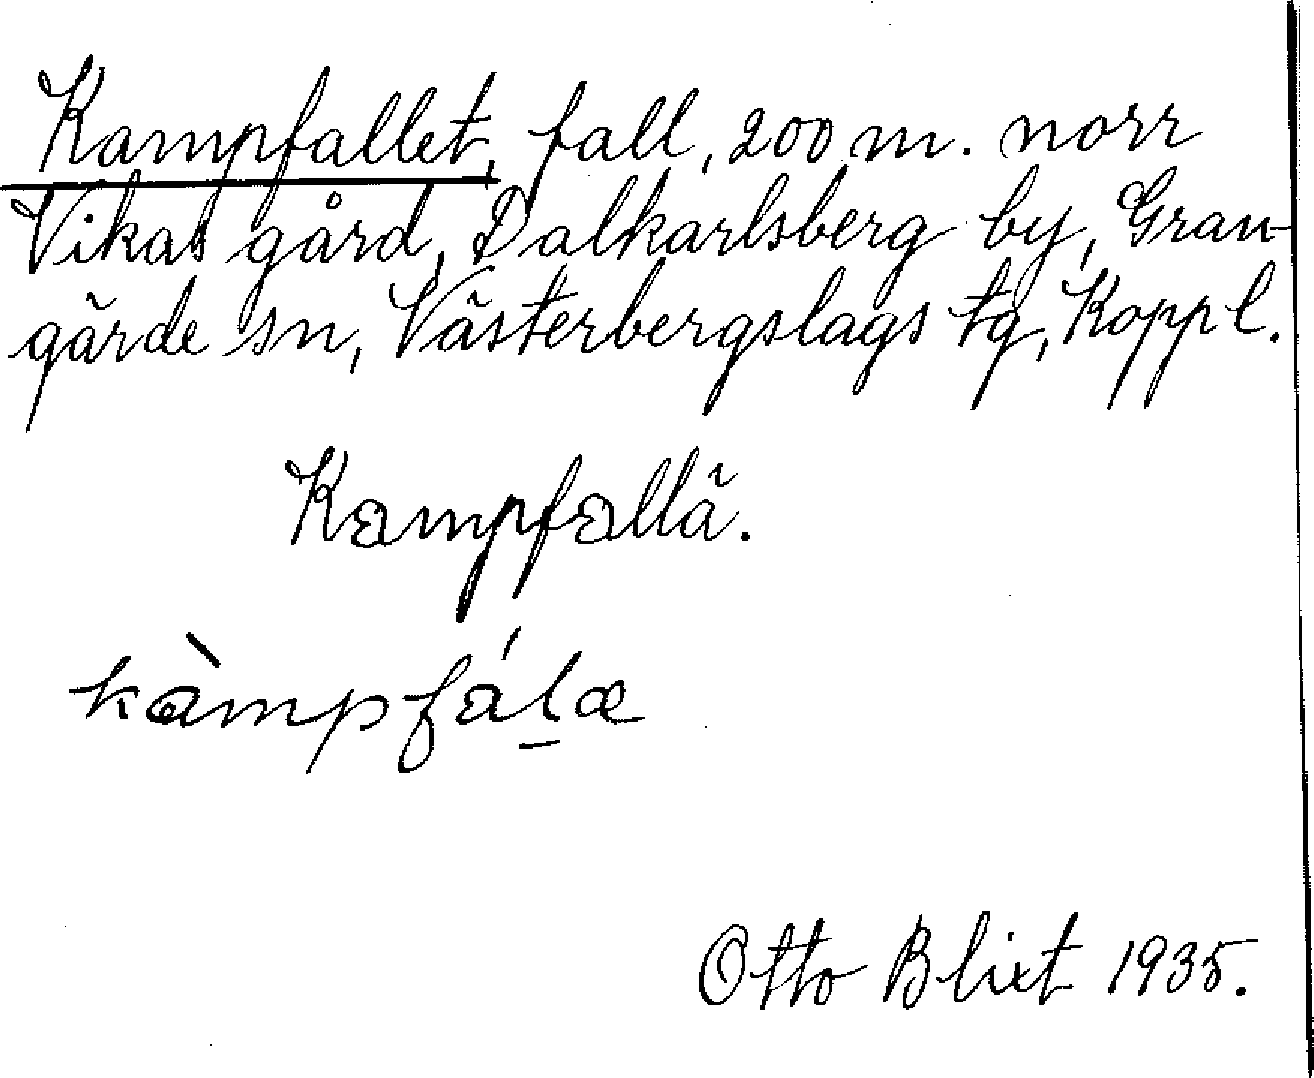 Kampfallet, fall, 200 m. norr
Vikas gård, Dalkarlsberg by, Gran-
gärde sn, Västerbergslags tg, Koppl.
Kampfallä.
kàmpfálæ
Otto Blixt 1935.